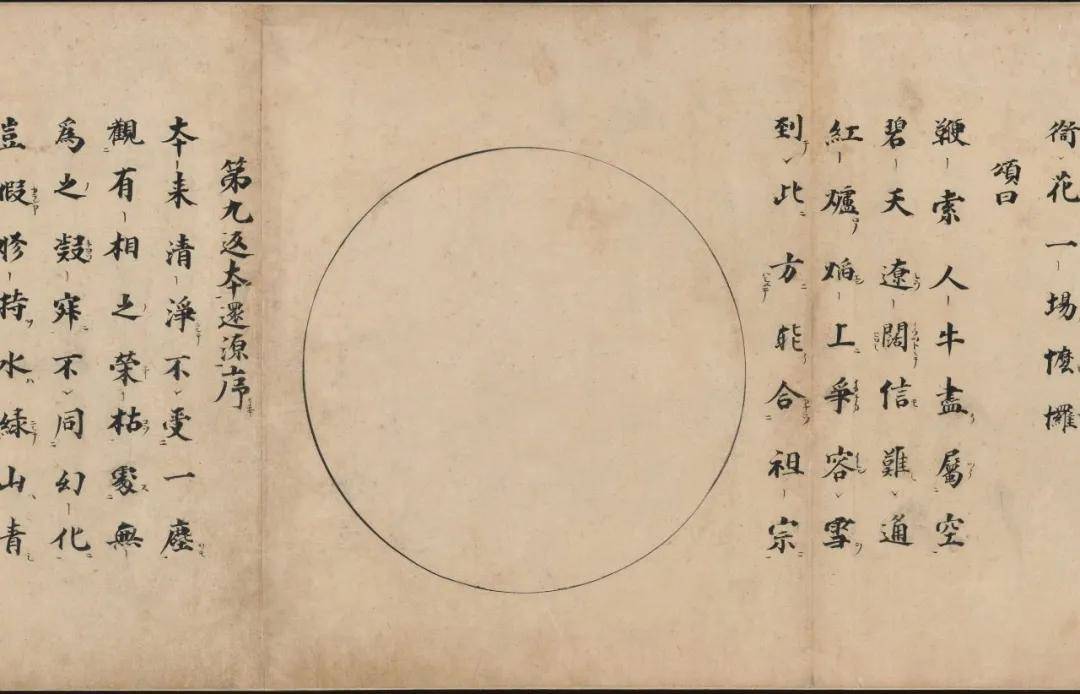 銜花一場㦬㦬
頌曰
鞭索人牛盡屬空
碧天遼闊信難通
紅爐焰上爭容雪
到此方能合祖宗
第九返本還源序
本来清淨不受一塵
觀有相之榮枯處無
為之凝寂不同幻化
豈假修持水緑山青